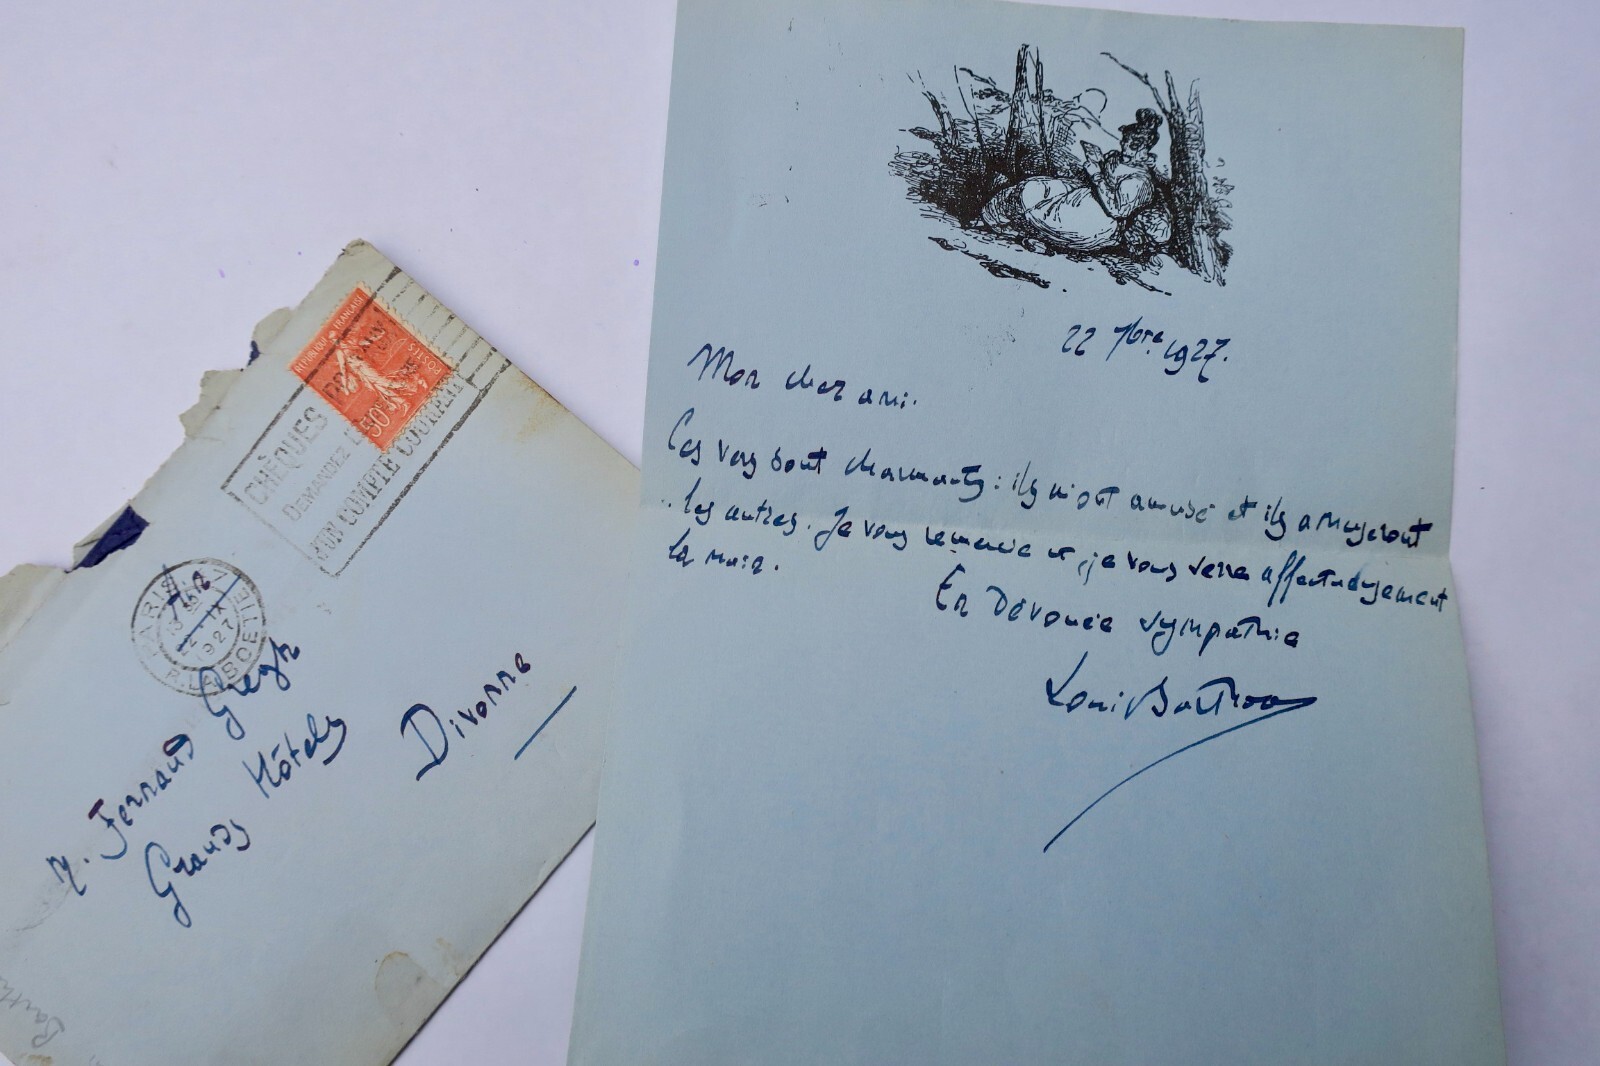 22 7bre 1927.
Mon cher ami.
Ces vers sont charmants : ils m'ont amusé et ils amuseront
les autres. Je vous remercie et je vous serre affectueusement
la main.
En dévouée sympathie
Louis Barthou
RÉPUBLIQUE FRANÇAISE
POSTES
50c
CHÈQUES POSTAUX
DEMANDEZ L'
D'UN COMPTE COURANT
PARIS
1927
R. LA BOETIE
Ain
M. Fernand Gregh
Grands Hôtels
Divonne